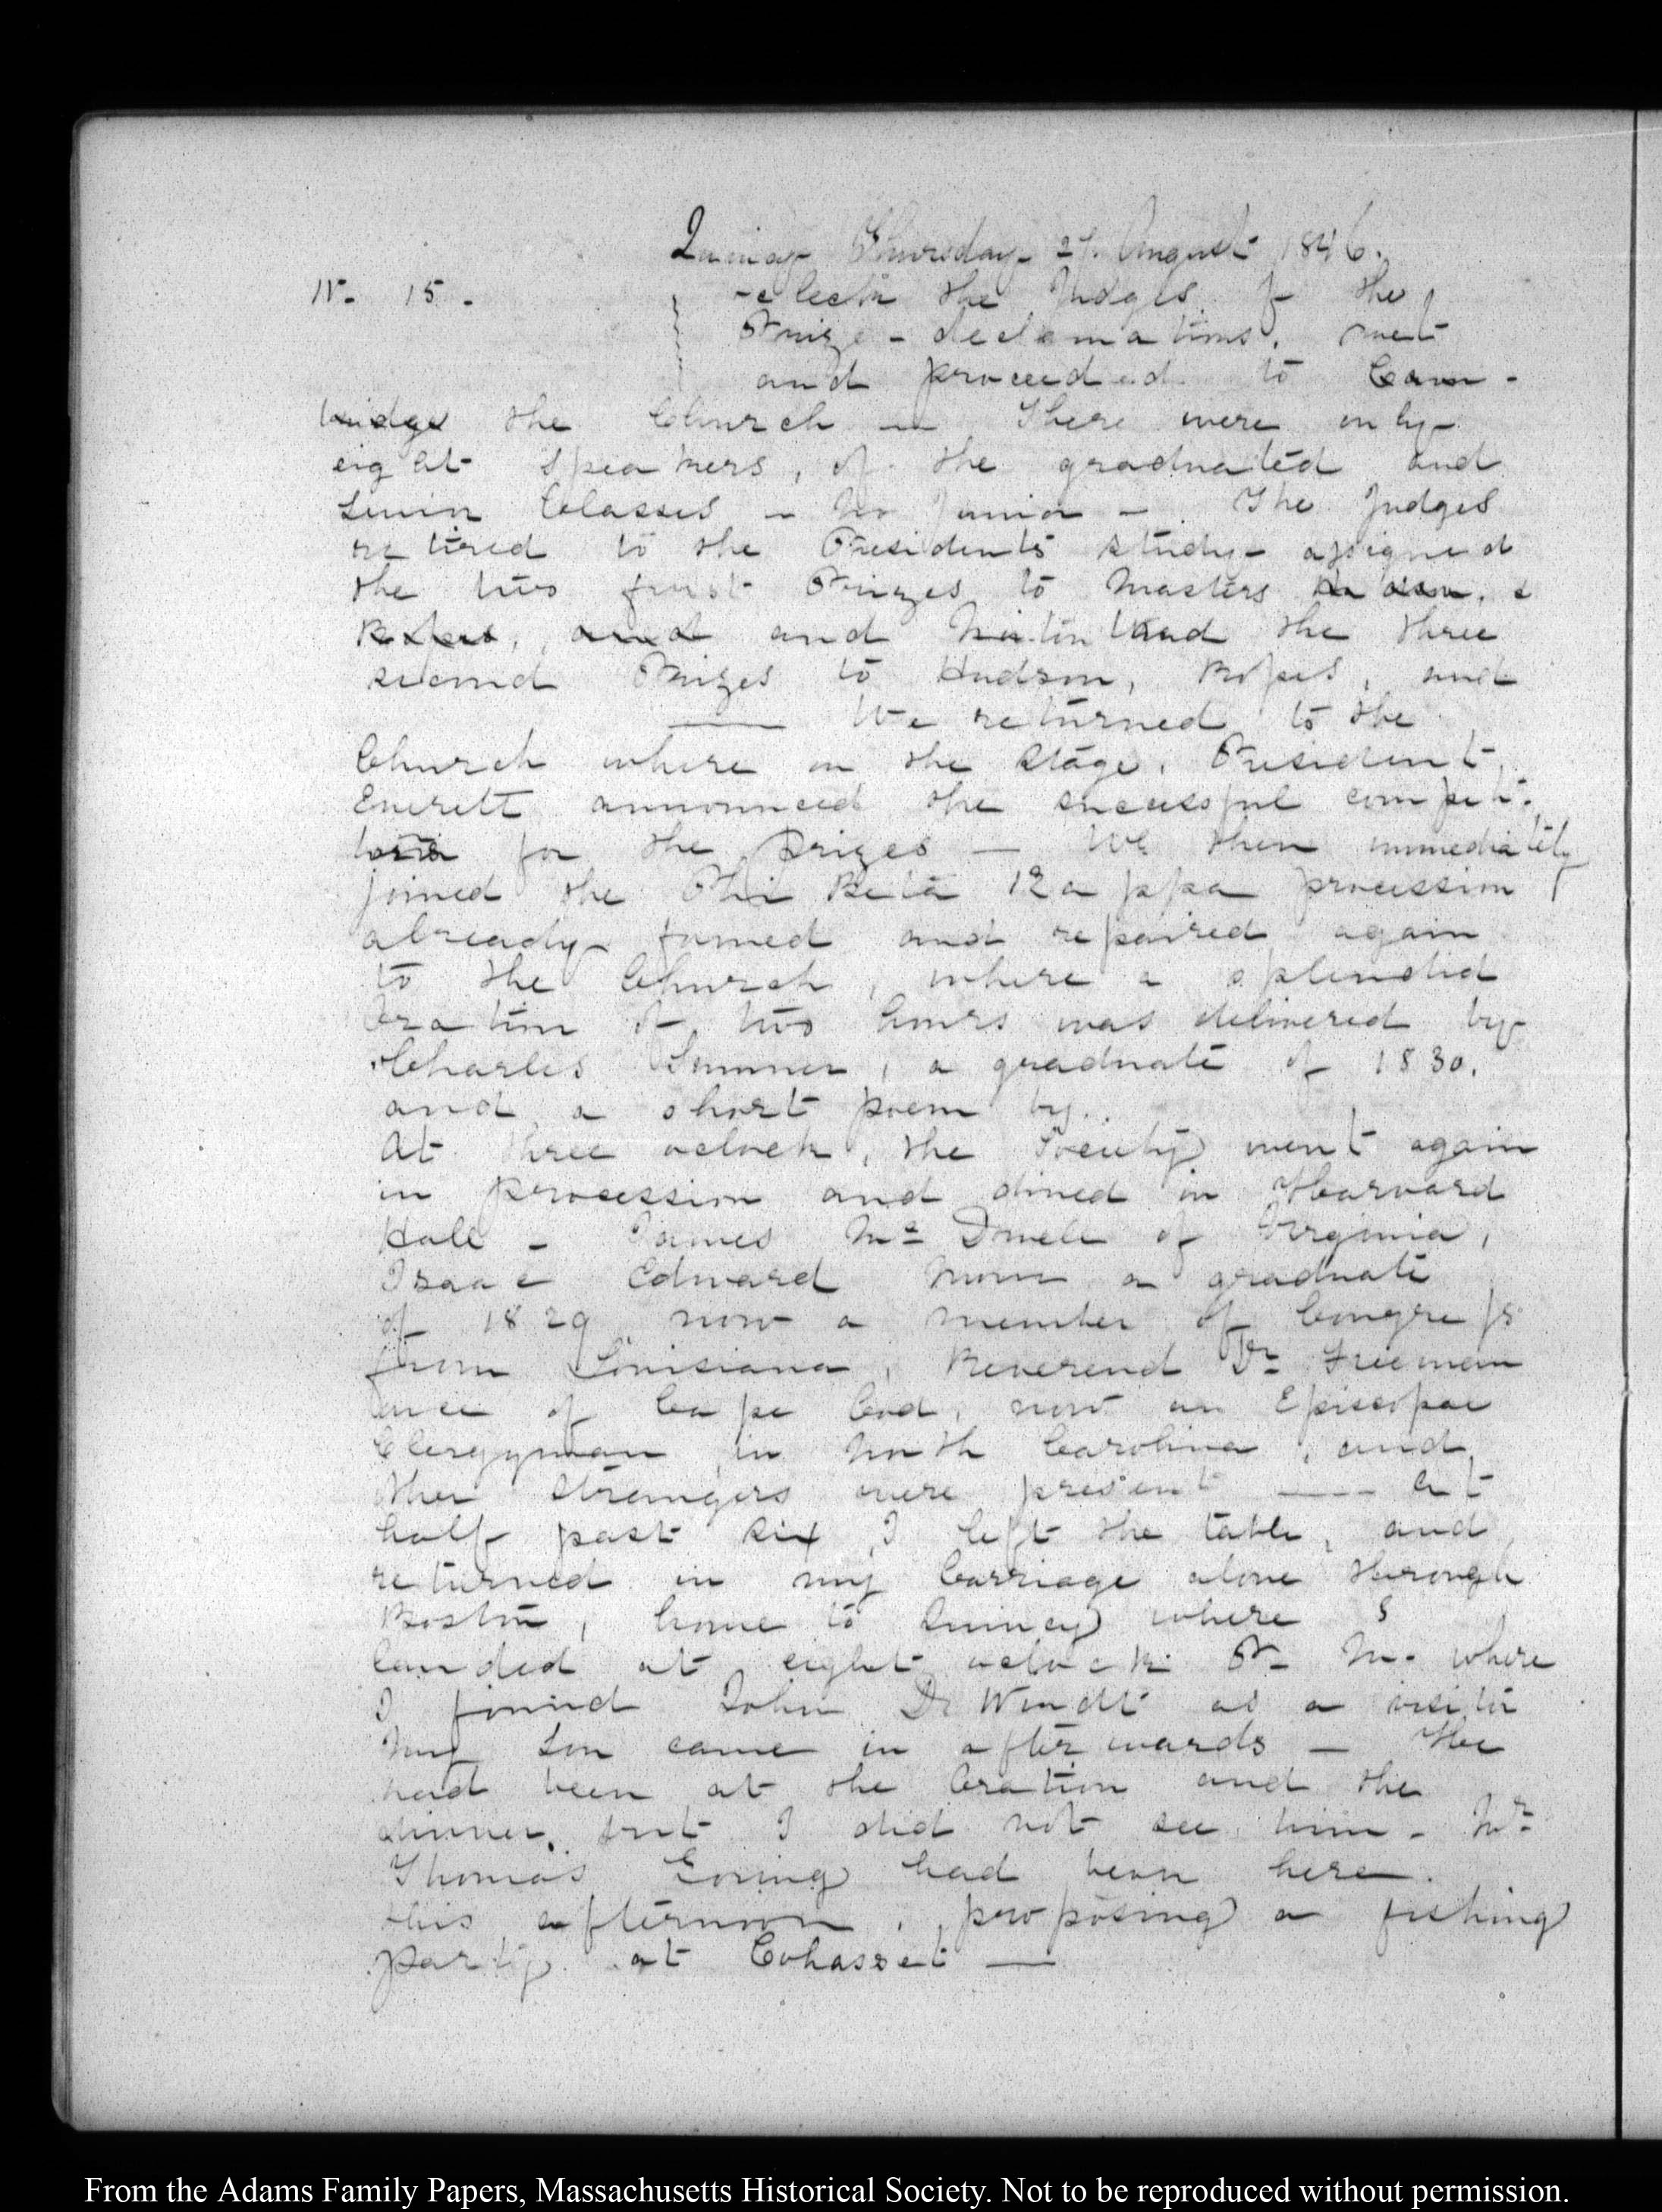 Quincy Thursday 27. August 1846.
IV. 15.
-elect the Judges of the
Prize-declamations, met
and proceeded to Cam-
bridge the Church — There were only
eight Speakers, of the graduated and
Senior Classes — no Junior — The Judges
retired to the Presidents study — assigned
the two first Prizes to Masters
and and the three
second Prizes to Hudson, Ropes, and
—— We returned to the
Church where on the stage, President
Everett announced the successful competi-
tors for the Prizes — We then immediately
joined the Phi Beta Kappa procession
already formed and repaired again
to the Church, where a splendid
Oration of two hours was delivered by
Charles Sumner, a graduate of 1830.
and a short poem by.
At three o'clock, the Society went again
in procession and dined in Harvard
Hall — James McDowell of Virginia,
Isaac Edward Morse a graduate
of 1829 now a member of Congress
from Louisiana, Reverend Dr. Freeman
once of Cape Cod, now an Episcopal
Clergyman in North Carolina, and
other strangers were present —— At
half past six I left the table, and
returned in my Carriage alone through
Boston, home to Quincy where I
landed at eight o'clock P. M. where
I found John De Windt as a visitor
My Son came in afterwards — He
had been at the Oration and the
dinner, but I did not see him. Mr
Thomas Ewing had been here
this afternoon, proposing a fishing
party at Cohasset —
From the Adams Family Papers, Massachusetts Historical Society. Not to be reproduced without permission.